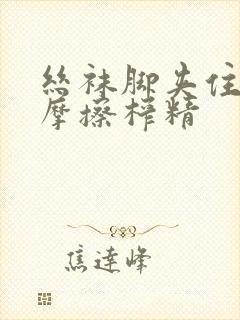 丝袜脚夹住
摩擦榨精
焦達峰